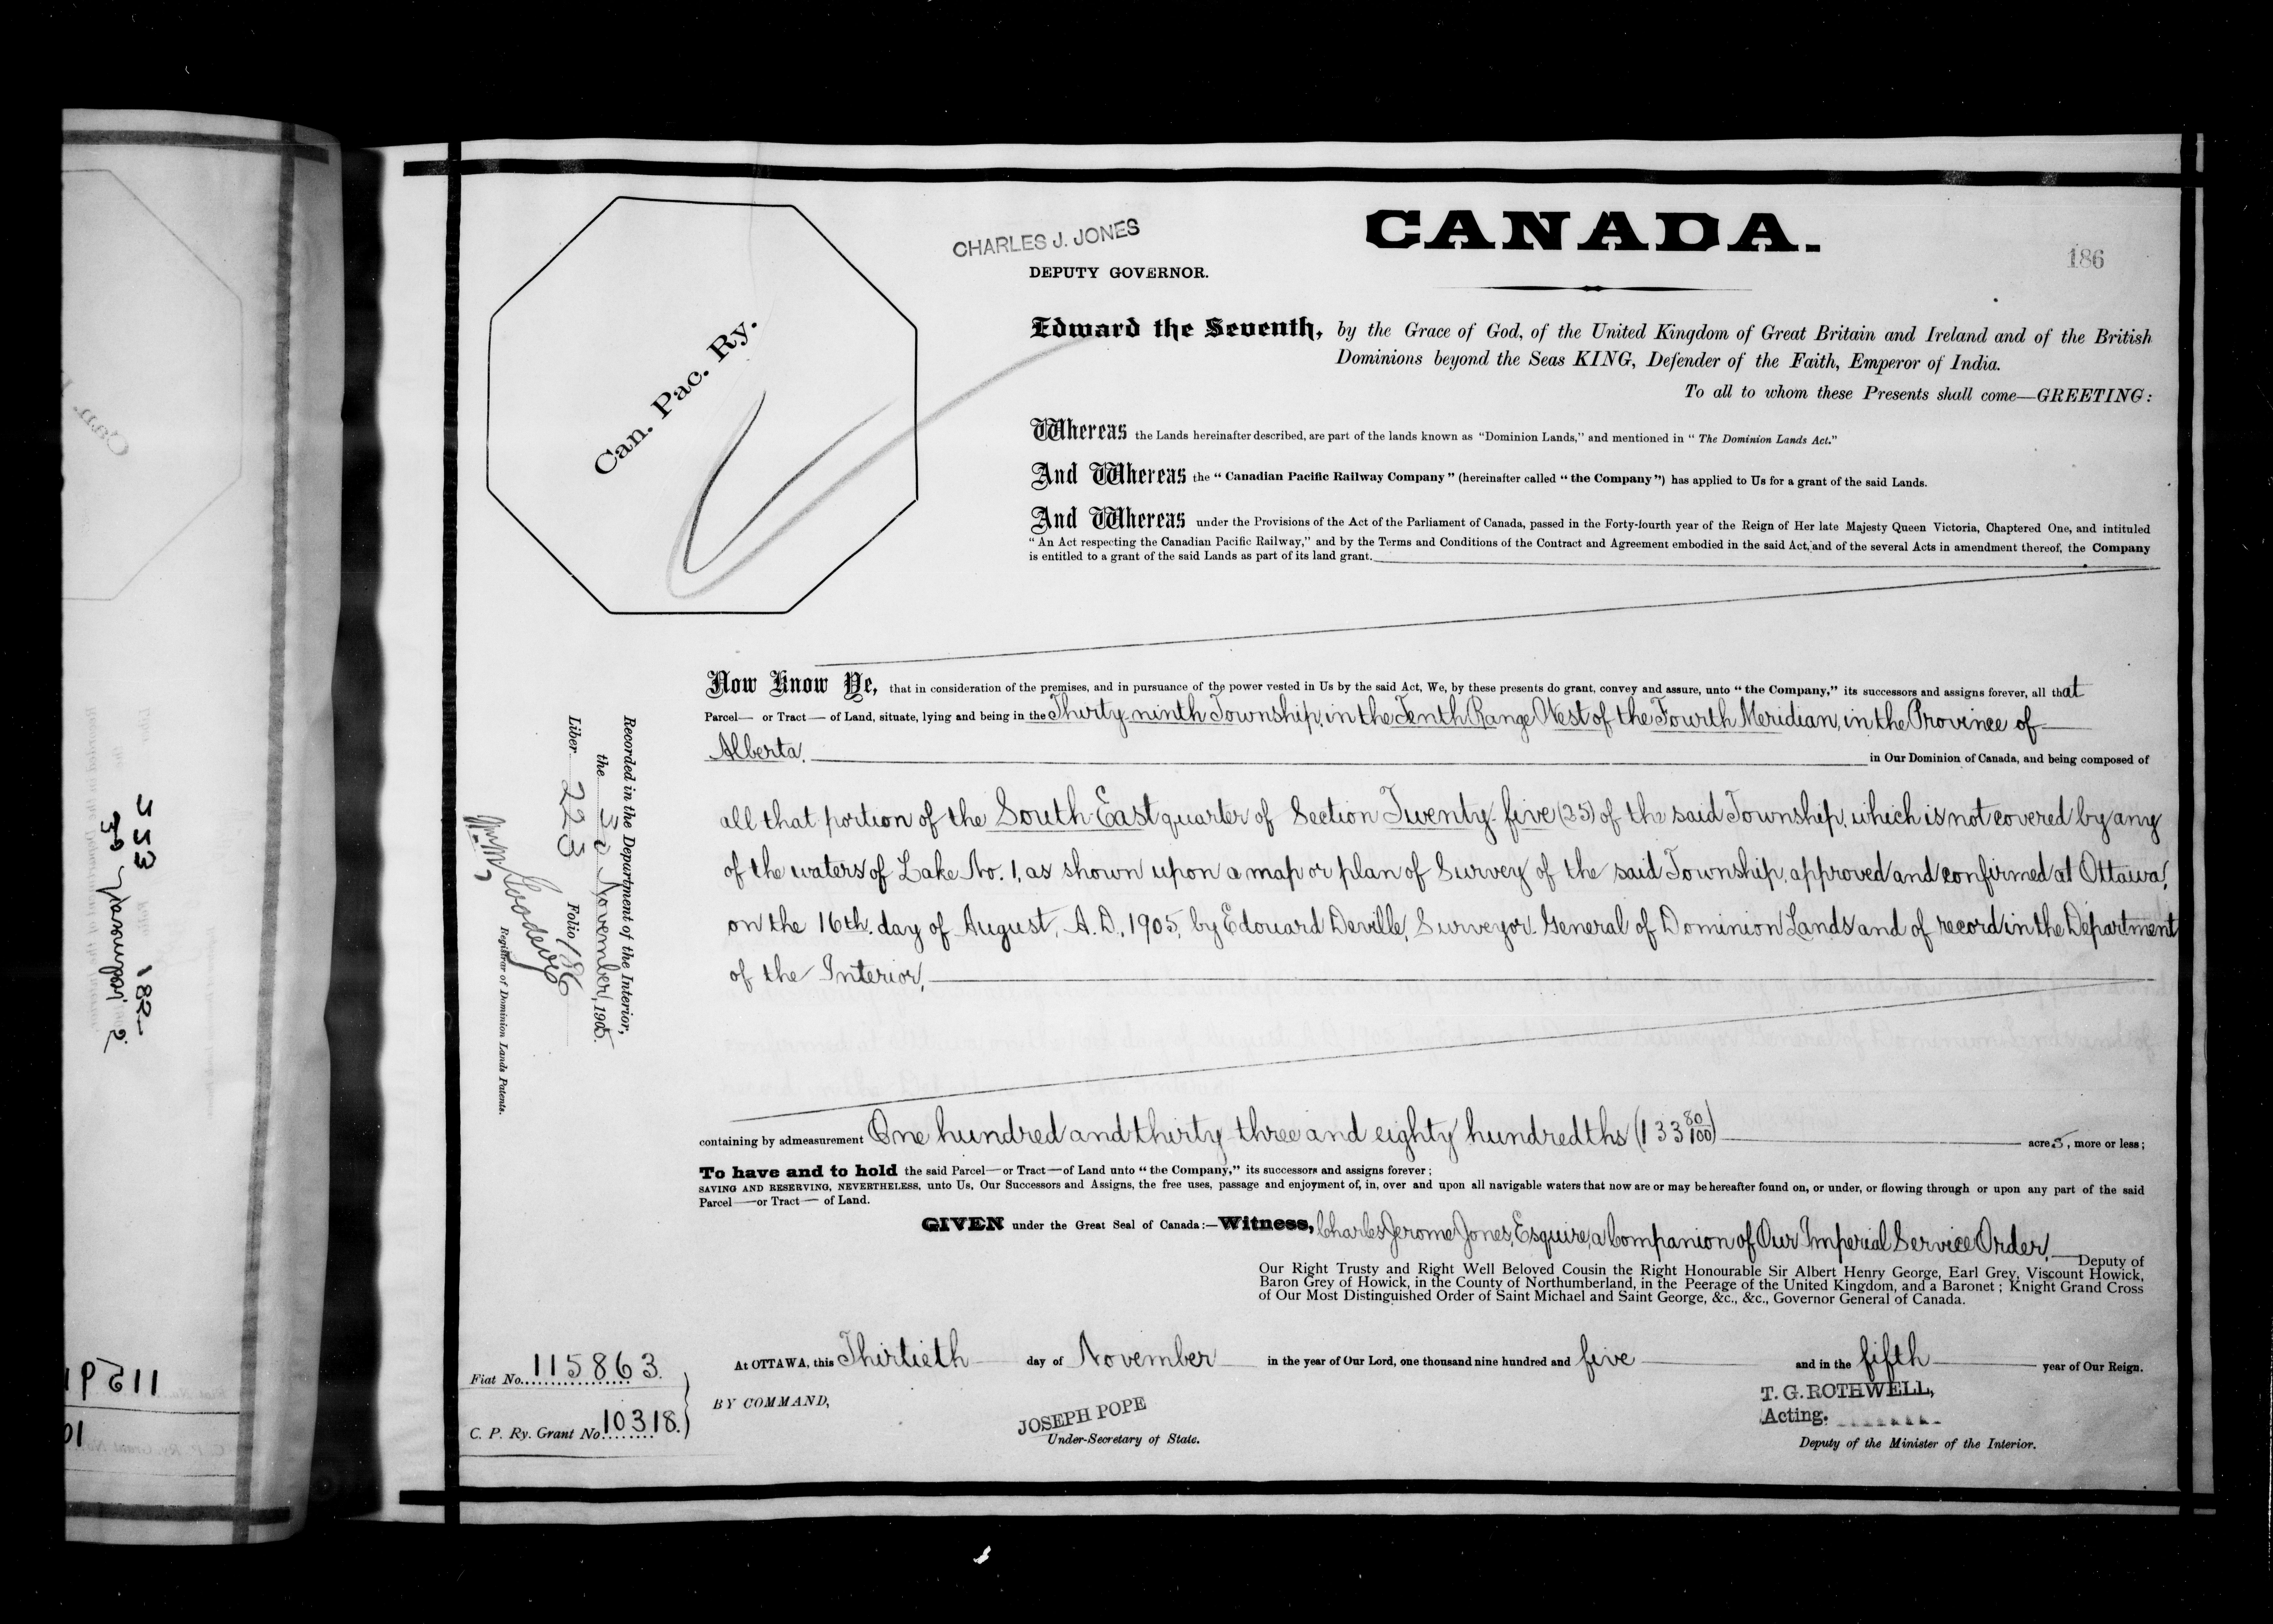 CHARLES J. JONES
DEPUTY GOVERNOR.
CANADA.
186
Can. Pac. Ry.
Edward the Seventh, by the Grace of God, of the United Kingdom of Great Britain and Ireland and of the British
Dominions beyond the Seas KING, Defender of the Faith, Emperor of India.
To all to whom these Presents shall come—GREETING:
Whereas the Lands hereinafter described, are part of the lands known as "Dominion Lands," and mentioned in "The Dominion Lands Act."
And Whereas the "Canadian Pacific Railway Company" (hereinafter called "the Company") has applied to Us for a grant of the said Lands.
And Whereas under the Provisions of the Act of the Parliament of Canada, passed in the Forty-fourth year of the Reign of Her late Majesty Queen Victoria, Chaptered One, and intituled
"An Act respecting the Canadian Pacific Railway," and by the Terms and Conditions of the Contract and Agreement embodied in the said Act, and of the several Acts in amendment thereof, the Company
is entitled to a grant of the said Lands as part of its land grant.
Now Know Ye, that in consideration of the premises, and in pursuance of the power vested in Us by the said Act, We, by these presents do grant, convey and assure, unto "the Company," its successors and assigns forever, all that
Parcel— or Tract— of Land, situate, lying and being in the Thirty-ninth Township, in the Tenth Range West of the Fourth Meridian, in the Province of
Alberta, in Our Dominion of Canada, and being composed of
all that portion of the South East quarter of Section Twenty-five (25) of the said Township, which is not covered by any
of the waters of Lake No. 1, as shown upon a map or plan of Survey of the said Township, approved and confirmed at Ottawa,
on the 16th. day of August, A.D., 1905, by Edouard Deville, Surveyor General of Dominion Lands and of record in the Department
of the Interior,
containing by admeasurement One hundred and thirty three and eighty hundredths (133 80/100) acres, more or less;
To have and to hold the said Parcel—or Tract—of Land unto "the Company," its successors and assigns forever;
SAVING AND RESERVING, NEVERTHELESS, unto Us, Our Successors and Assigns, the free uses, passage and enjoyment of, in, over and upon all navigable waters that now are or may be hereafter found on, or under, or flowing through or upon any part of the said
Parcel—or Tract— of Land.
GIVEN under the Great Seal of Canada:—Witness, Charles Jerome Jones, Esquire, a Companion of Our Imperial Service Order, Deputy of
Our Right Trusty and Right Well Beloved Cousin the Right Honourable Sir Albert Henry George, Earl Grey, Viscount Howick,
Baron Grey of Howick, in the County of Northumberland, in the Peerage of the United Kingdom, and a Baronet; Knight Grand Cross
of Our Most Distinguished Order of Saint Michael and Saint George, &c., &c., Governor General of Canada.
At OTTAWA, this Thirtieth day of November in the year of Our Lord, one thousand nine hundred and five and in the fifth year of Our Reign.
BY COMMAND,
JOSEPH POPE
Under-Secretary of State.
T. G. ROTHWELL,
Acting.
Deputy of the Minister of the Interior.
Fiat No. 115863.
C. P. Ry. Grant No. 10318.
Recorded in the Department of the Interior,
the 30 November, 1905.
Liber 223 Folio 186
Registrar of Dominion Lands Patents.